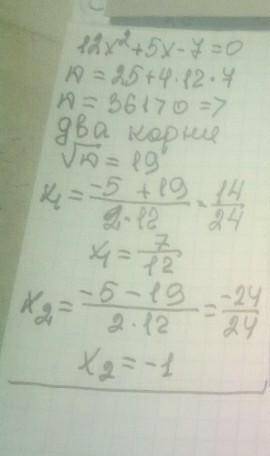 12x²+5x-7=0
D=25+4·12·7
D=361>0 =>
два корни
√D=19
x₁=(-5+19)/(2·12)=14/24
x₁=7/12
x₂=(-5-19)/(2·12)=-24/24
x₂=-1